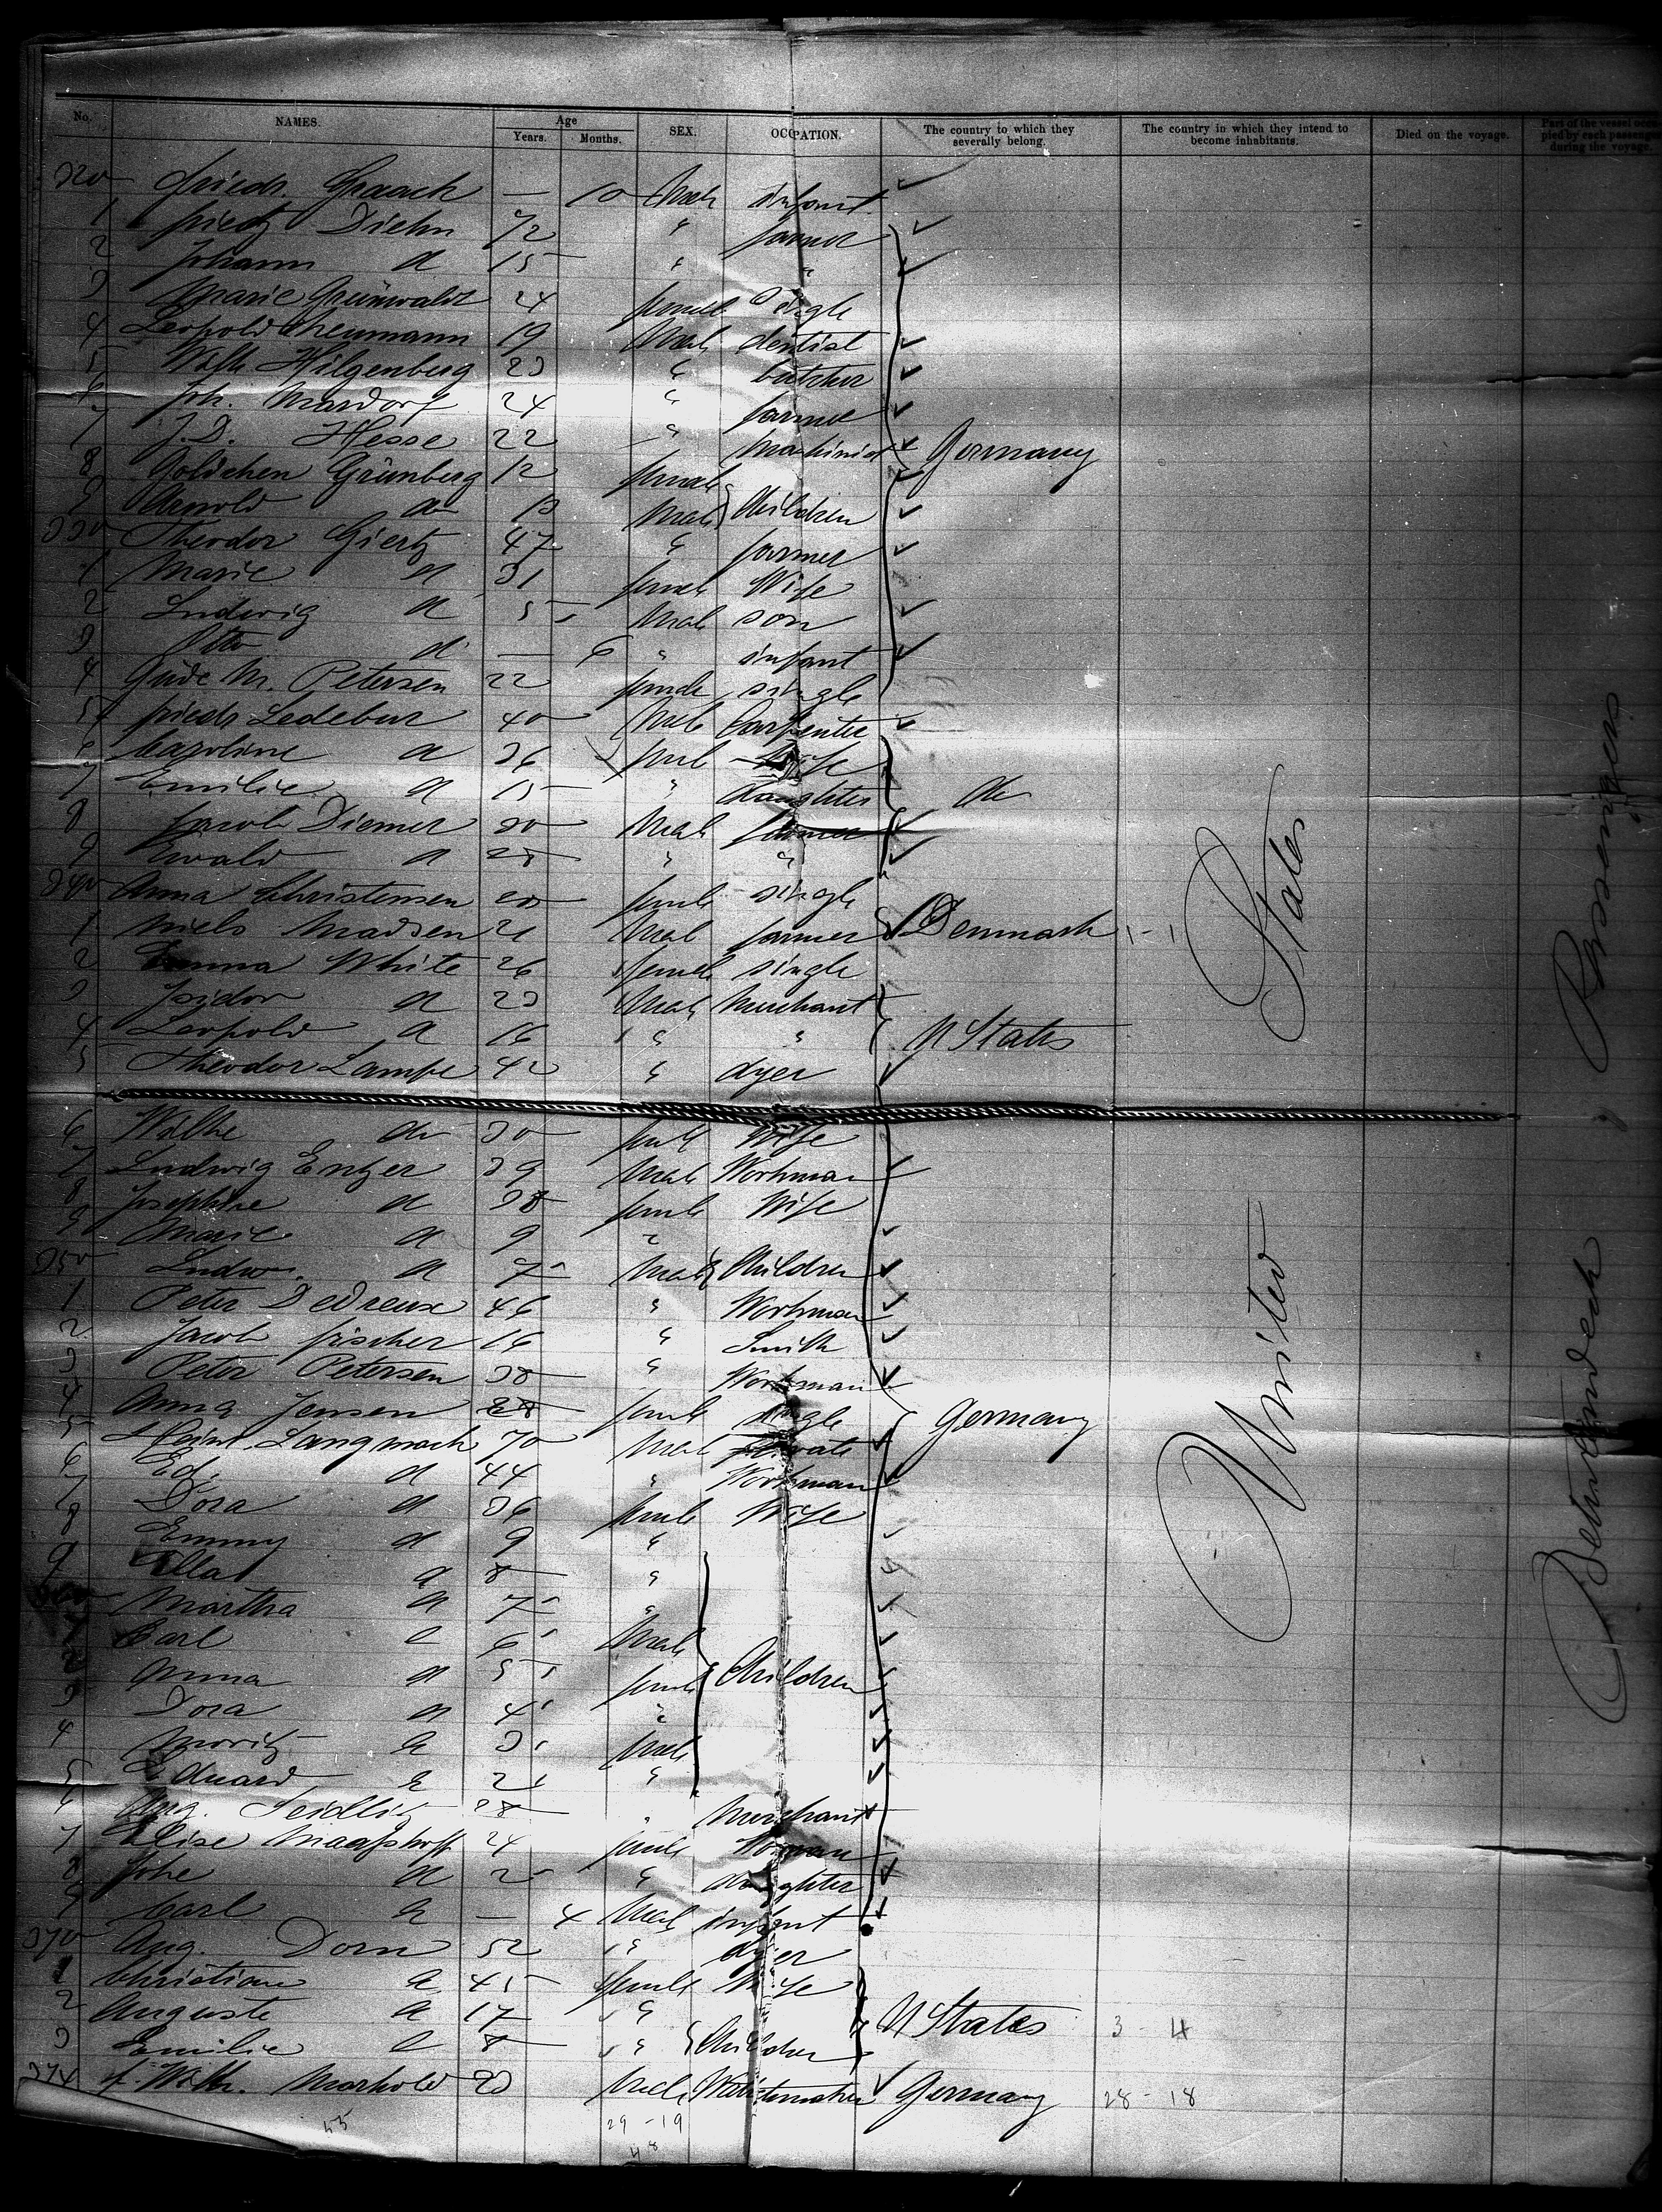 No. NAMES. Age Years. Months. SEX. OCCUPATION. The country to which they severally belong. The country in which they intend to become inhabitants. Died on the voyage. Part of the vessel occupied by each passenger during the voyage.
320 Friedr. Graack — 10 Male infant
1 Diehn 72 " farmer
2 Johann d 15 " "
3 Marie Grünwaldt 24 female Single
4 Leopold Neumann 19 Male dentist
5 Wilh. Hilgenberg 23 " butcher
6 Joh. Mardorf 24 " farmer
7 J.D. Hesse 22 " Machinist Germany
8 Grünberg 12 female
9 Arnold do Male Children
330 Theodor Giertz 47 " farmer
1 Marie d 31 female Wife
2 Ludwig d 5 Male son
3 Otto d — 6 " infant
4 M. Petersen 22 female single
5 Friedr Ledebur 40 Male Carpenter
6 Caroline d 36 female Wife
7 Emilie d 15 " daughter do
8 Jacob Diemer 30 Male farmer
9 Ewald d 28 " "
340 Anna Christensen 20 female single
1 Niels Madsen 21 Male farmer Denmark 1 - 1
2 Emma White 26 female single
3 Isidor d 23 Male Merchant
4 Leopold d 16 " " U States
5 Theodor Lampe 42 " dyer
6 Wilhe do 30 female Wife
7 Ludwig Entzer 39 Male Workman
8 Josephine d 38 female Wife
9 Marie d 9 "
350 Ludw. d 7 Male Children
1 Peter Dedreux 46 " Workman
2 Jacob Fischer 16 " Smith
3 Peter Petersen 38 " Workman
4 Anna Jensen 28 female single Germany
5 Heinr. Langmack 70 Male Private
6 Ed. d 44 " Workman
7 Dora d 36 female Wife
8 Emmy d 9 "
9 Ella d 8 "
360 Martha d 7 "
1 Carl d 6 Male
2 Anna d 5 female Children
3 Dora d 4 "
4 Moritz d 3 Male
5 Eduard d 2 "
6 Aug. Seidlitz 28 " Merchant
7 Elise 24 female Woman
8 Johe d 2 " daughter
9 Carl d — 4 Male infant
370 Aug. Dorn 52 " dyer
1 Christiane d 45 female Wife
2 Auguste d 17 " U States 3 - 4
3 Emilie d 8 " Children
374 F. Wilh. Markold 23 Male Germany 28 - 18
55 29 - 19
48
United States
Between deck Passengers